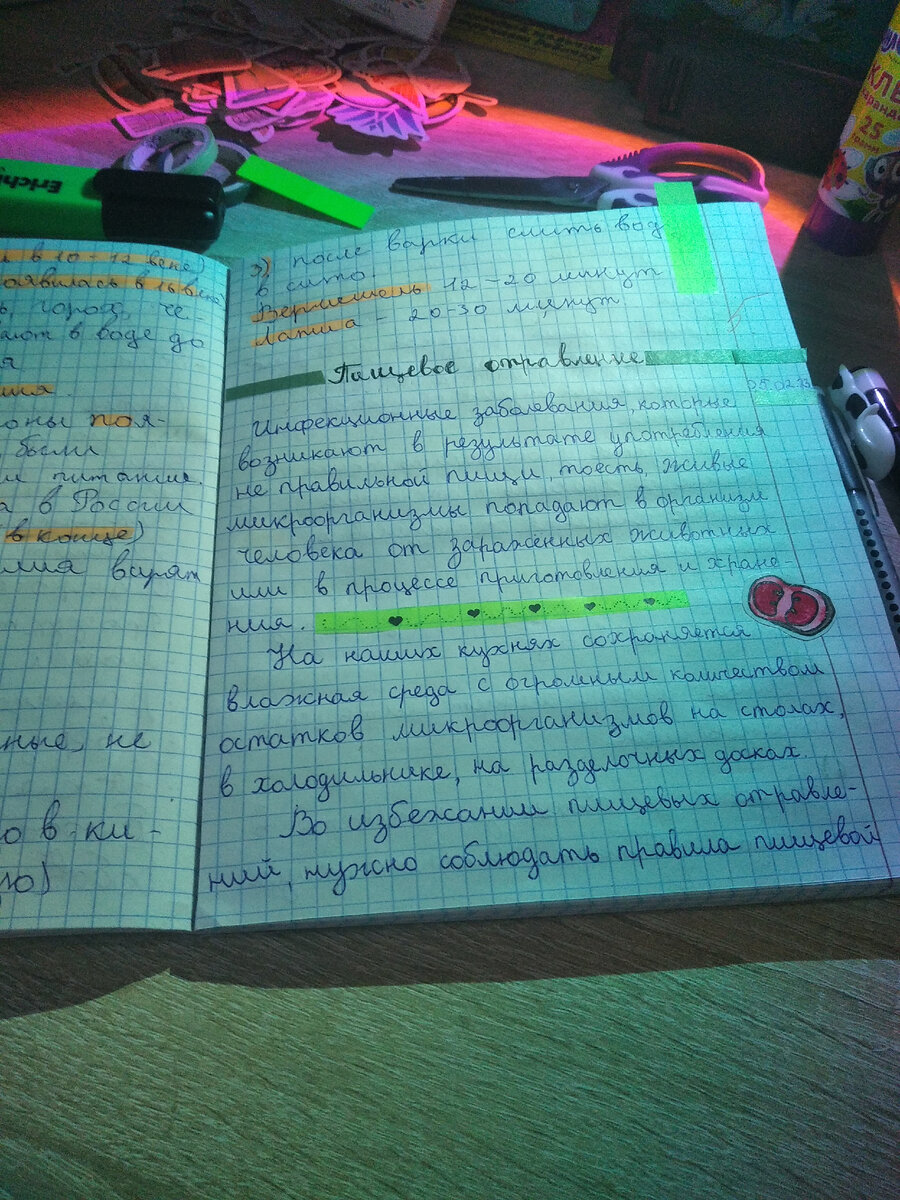 в 10-12 веке)
появилась в 16 веке
горох, че-
ают в воде до
я
ия.
оны поя-
были
питания
а в России
в конце)
лия варят
ные, не
о в ки-
ю)
3) после варки слить вод
в сито.
Вермишель 12-20 минут
Лапша - 20-30 минут
Пищевое отравление
05.02.23
Инфекционные заболевания, которые
возникают в результате употребления
не правильной пищи, тоесть, живые
микроорганизмы попадают в организм
человека от зараженных животных
или в процессе приготовления и хране-
ния.
На наших кухнях сохраняется
влажная среда с огромным количеством
остатков микроорганизмов на столах,
в холодильнике, на разделочных досках.
Во избежании пищевых отравле-
ний, нужно соблюдать правила пищевой
Erich
25